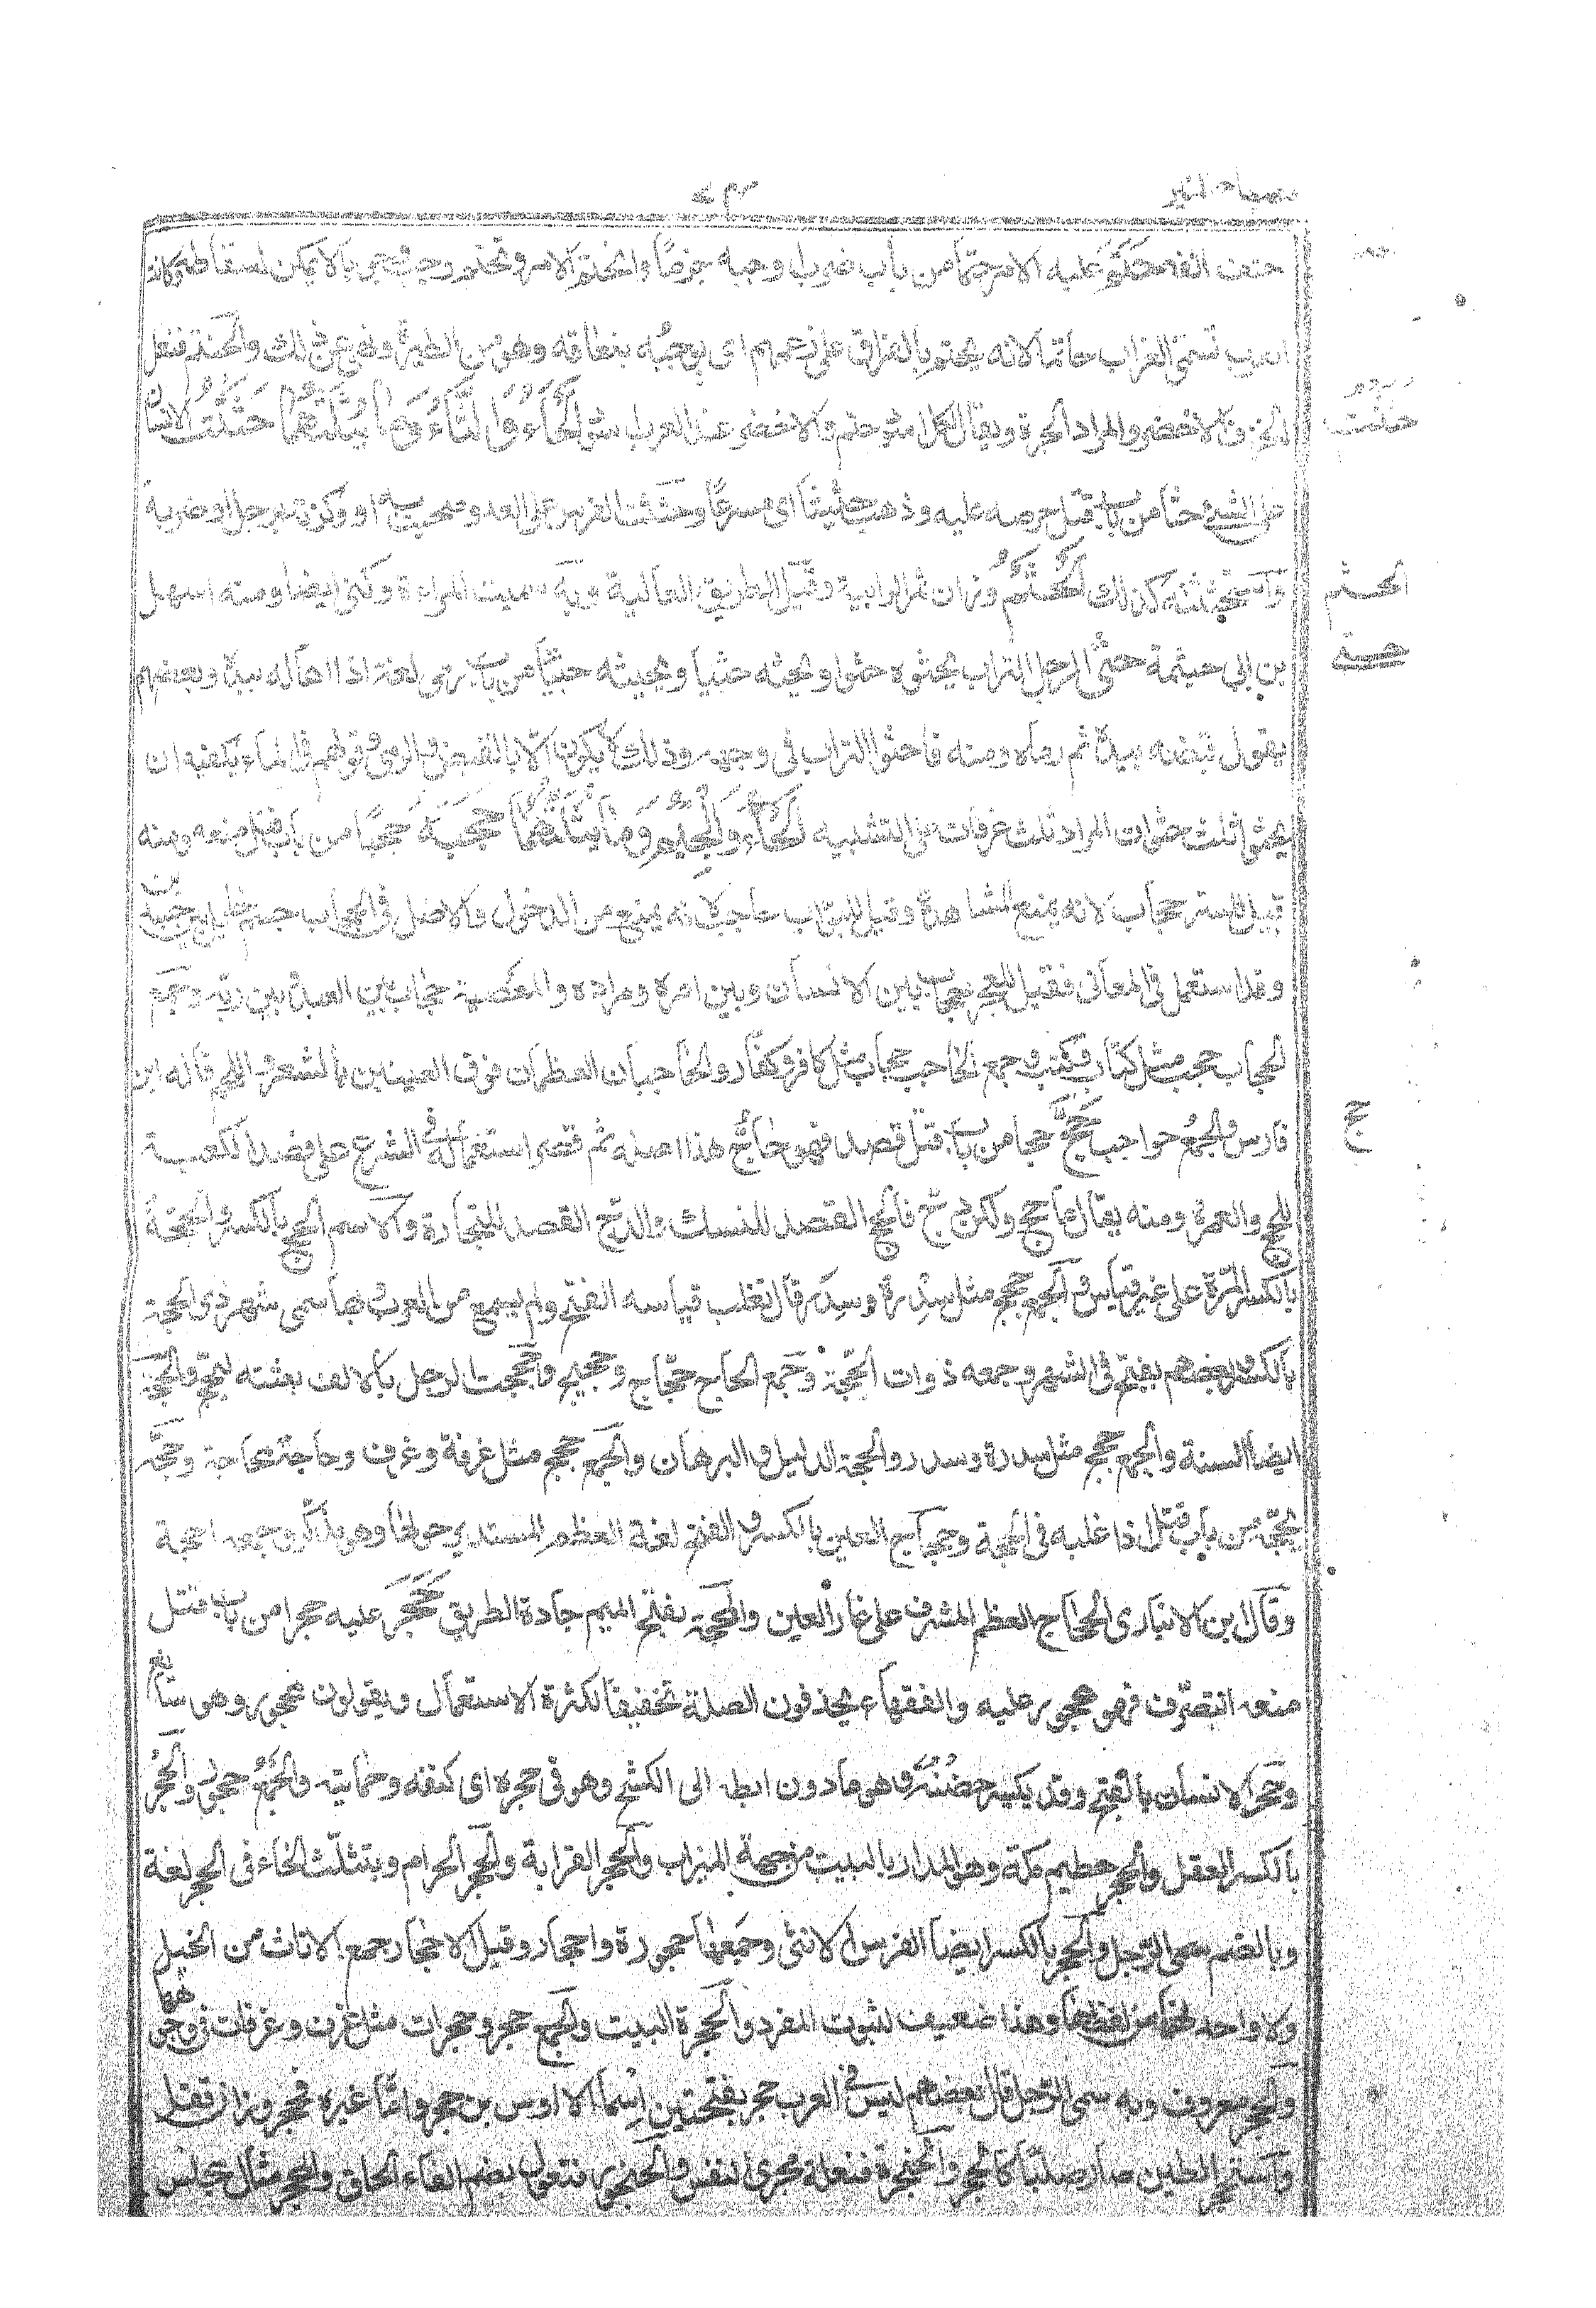 مصباح المنير
حتف انفه حَتَمَ عليه الامر حتما من باب ضرب اوجبه جزما وانحتم الامر وتحتم وجب وجوبا لا يمكن اسقاطه وكانت
العرب تسمى الغراب حاتما لانه يحتم بالفراق على زعمهم اى يوجبه بنعاقه وهو من الطيرة ونهى عن ذلك والحنتم فنعل
الخزف الاخضر والمراد الجرة ويقال لكل اسود حنتم والاخضر عند العرب اسود الحَاءُ وَالثَّاءُ وَمَا يُثَلِّثُهُمَا حَثَثْتُ الانسان
على الشئ حثا من باب قتل حرصه عليه وذهب حثيثا اى مسرعا وحثثت الفرس على العدو صحت به او وكزته برجل او ضربة
وَاستحثثته كذلك الحَثْمَةُ وزان تمر الرابية وقيل الطريق العالية وبه سميت المراءة وكنى ايضا ومنه اسهل
بن ابى حيثمة حثى الرجل التراب يحثوه حثوا ويحثه حثيا ويحيثه حثيا من باب رمى لغة اذا اهاله بيده وبعضهم
يقول قبضه بيده ثم رماه ومنه فاحثوا التراب فى وجهه وذلك لا يكون الا بالقبض والرمى وقولهم فى الماء يكفيه ان
يحثوا ثلث حثوات المراد ثلث غرفات على التشبيه الحَاءُ وَالجِيمُ وَمَا يُثَلِّثُهُمَا حَجَبَهُ حَجبًا من باب قتل منعه ومنه
قيل للستر حجاب لانه يمنع المشاهدة وقيل للبواب حاجب لانه يمنع من الدخول والاصل فى الحجاب جسم حايل بين جسدين
وقد استعمل فى المعانى فقيل العجز حجاب بين الانسان وبين امره ومراده والمعصية حجاب بين العبد بين ربه وجمع
الحجاب حجب مثل كتاب وكتب وجمع الحاجب حجاب مثل كافر وكفار والحاجبان العظمان فوق العينين بالشعر واللحم قاله ابن
فارس والجمع حواجب حَجَّ حجا من باب قتل قصد فهو حاجّ هذا اصله ثم قصر استعماله فى الشرع على قصد الكعبة
للحج والعمرة ومنه يقال ما حج ولكن دج فالحج القصد للنسك والدج القصد للتجارة والاسم الحج بالكسر والحجة
بالكسر المرة على غير قياس والجمع حجج مثل سِدْرة وسِدَر قال ثعلب قياسه الفتح ولم يسمع من العرب وبها سمى شهر ذى الحجة
بالكسر وبعضهم يفتح فى الشهر وجمعه ذوات الحجّة وجمع الحاج حجّاج وحجيج واحججت الرجل بالالف بعثته ليحج والحجّة
ايضا السنة والجمع حجج مثل سدرة وسدر والحجة الدليل والبرهان والجمع حجج مثل غرفة وغرف وحاجّة محاجة وحجّه
يحجّه من باب قتل اذا غلبه فى الحجة وحجاج العين بالكسر والفتح لغة العظم المستدير حولها وهو مذكّر وجمعه احجة
وقال بن الانبارى الحجاج العظم المشرف على غار العين والمحجّة بفتح الميم جادة الطريق حَجَرَ عليه حجرا من باب قتل
منعه التصرّف فهو محجور عليه والفقهاء يحذفون الصلة تخفيفا لكثرة الاستعمال ويقولون محجور وهو سائغ
وحجر الانسان بالفتح وقد يكسر حضنه وهو مادون ابطه الى الكشح وهو فى حجره اى كنفه وحمايته والجمع حجور والحجر
بالكسر العقل والحجر حطيم مكة وهو المدار بالبيت من جهة الميزاب والحجر القرابة والحجر الحرام وبتثليث الحاء فى الحجر لغة
وبالضم سمى الرّجل والحجر بالكسر ايضا الفرس الانثى وجمعها حجورة واحجار وقيل الاحجار جمع الاناث من الخيل
ولا واحد لها من لفظها وهذا ضعيف لثبوت المفرد والحجرة البيت والجمع حجر وحجرات مثل غرف وغرفات فى وجوهها
والحجر معروف وبه سمى الرّجل قال بعضهم ليس فى العرب حجر بفتحتين اسما الا اوس بن حجر وامّا غيره فحجر وزان قفل
واستحجر الطين صار صلبا كالحجر والحنجرة فنعلة مجرى النفس والحنجور فنعول بضم الفاء الحلق والمحجر مثال مجلس
حثثت
الحثم
حثى
حج